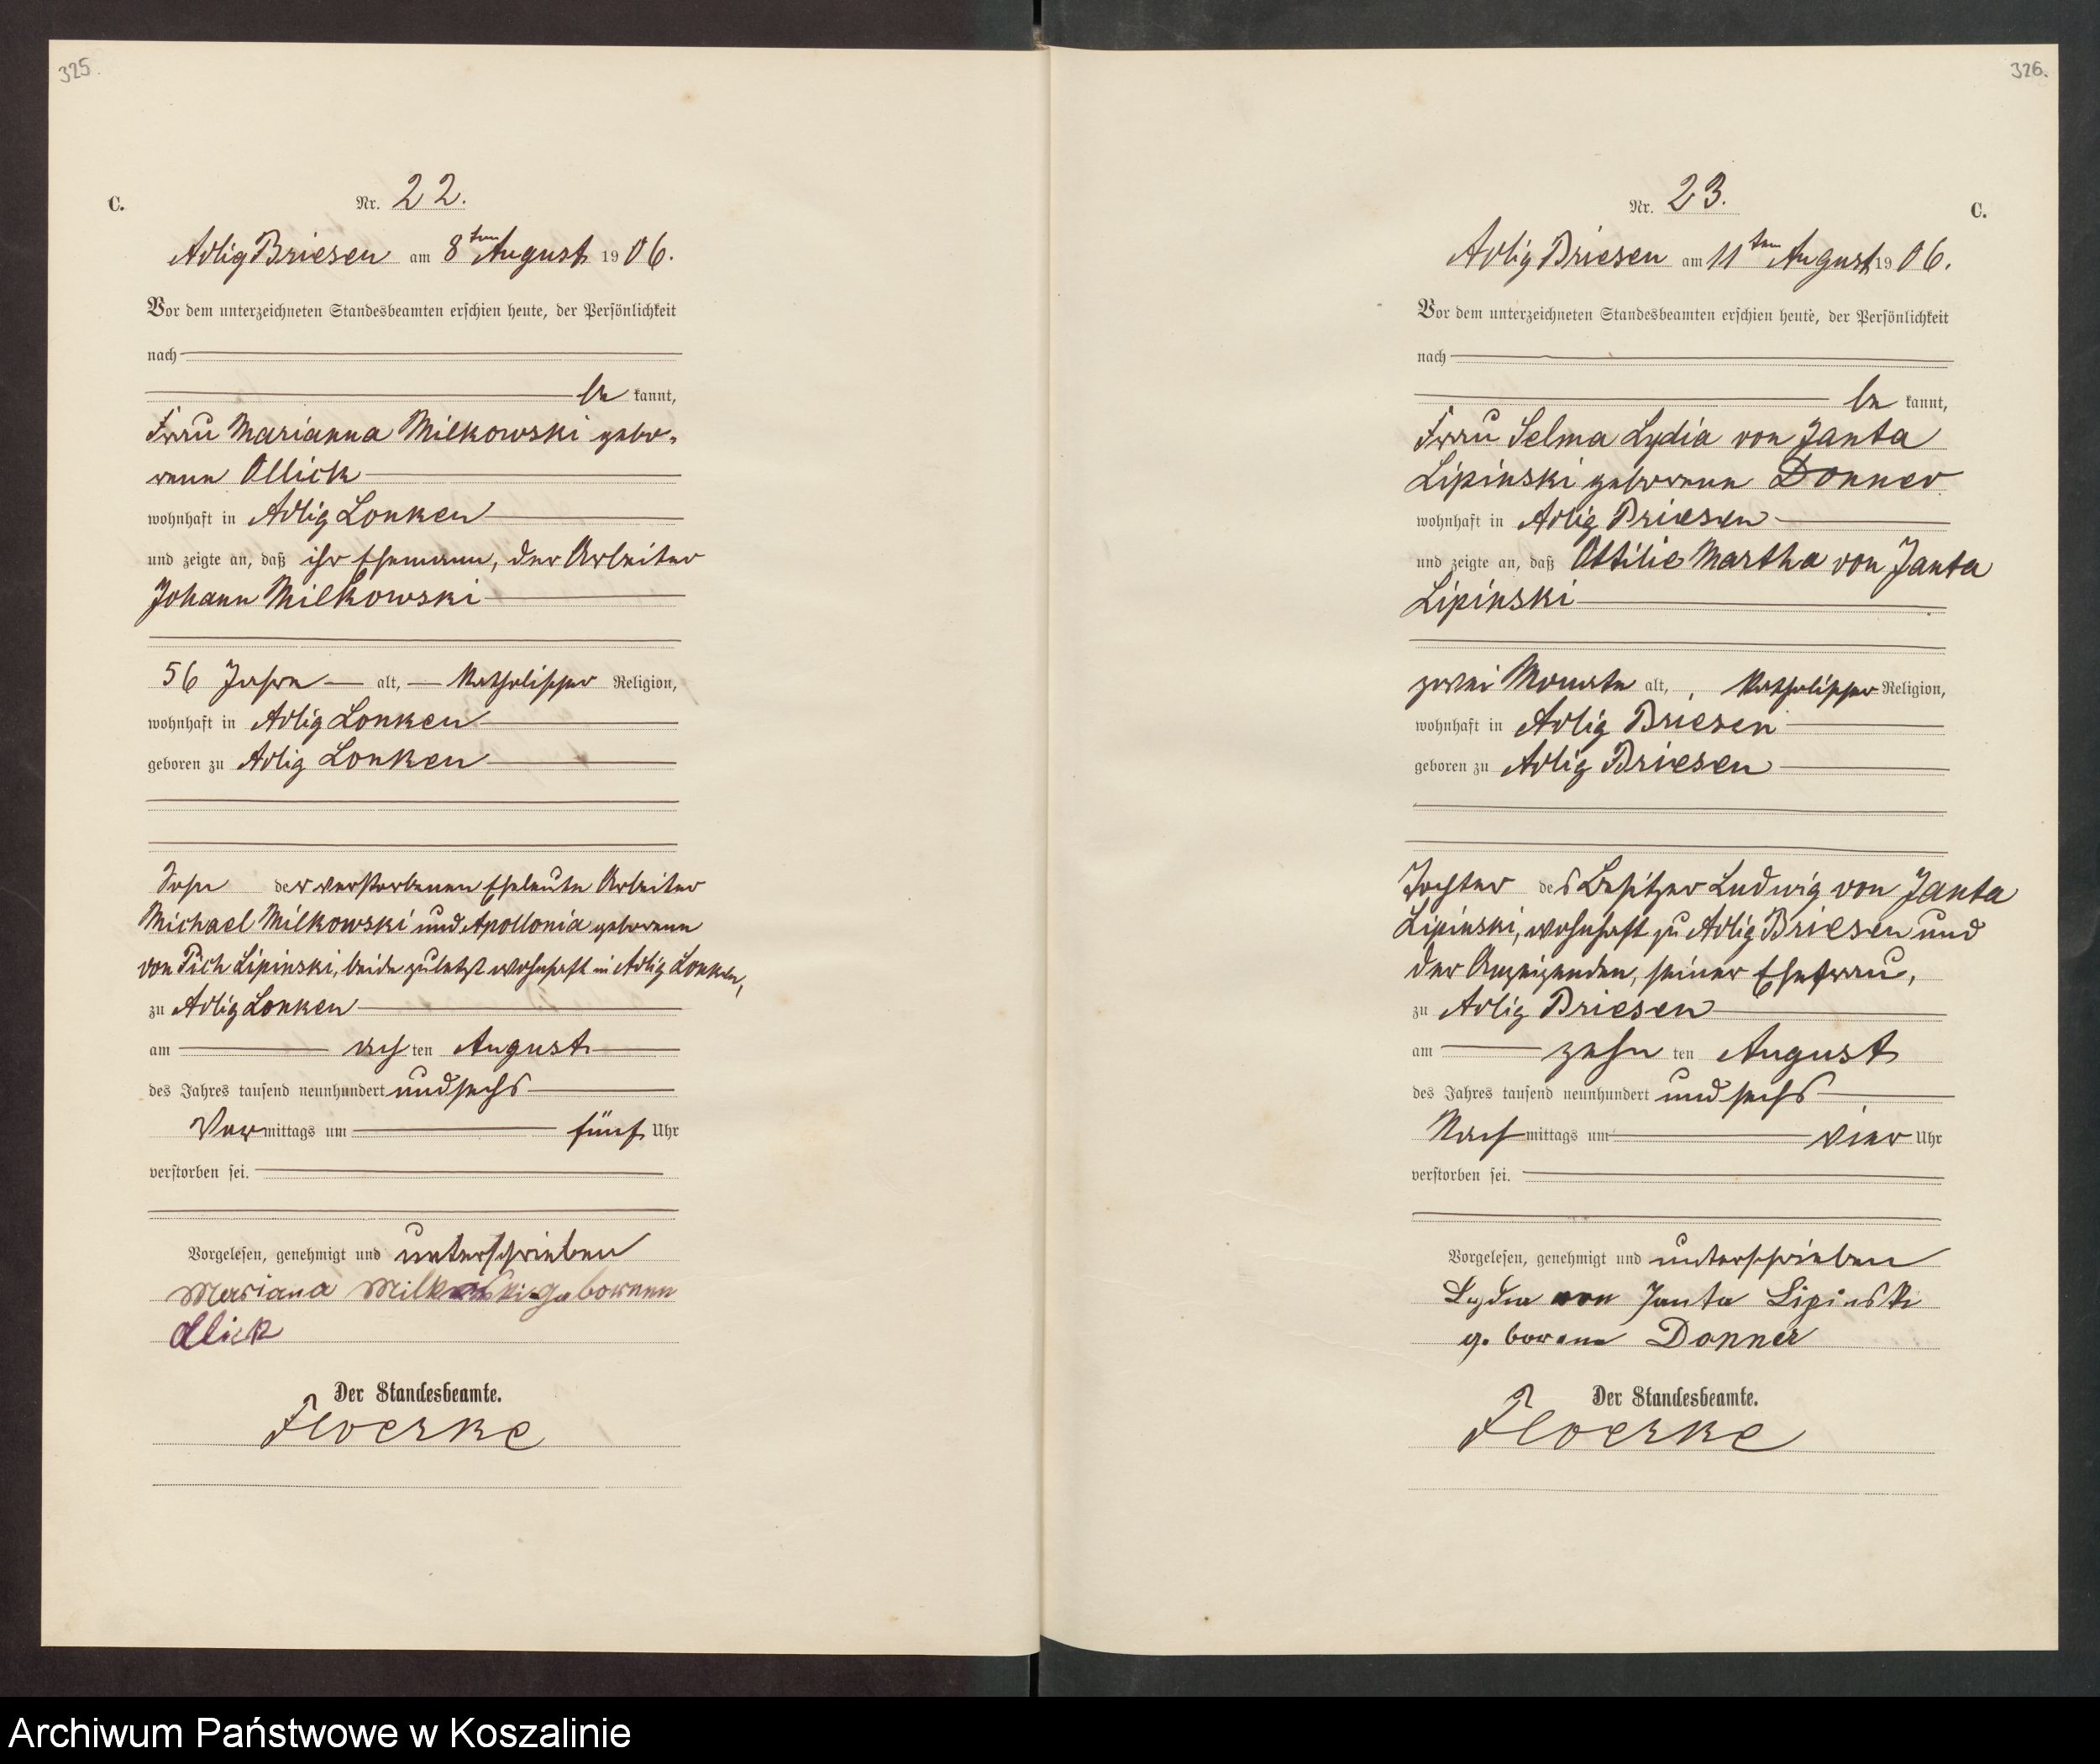 325.
C.
Nr. 22.
Adlig Briesen am 8ten August 1906.
Vor dem unterzeichneten Standesbeamten erschien heute, der Persönlichkeit
nach
be kannt,
Frau Marianna Milkowski gebo-
rene Ollick
wohnhaft in Adlig Lonken
und zeigte an, daß ihr Ehemann, der Arbeiter
Johann Milkowski
56 Jahre alt, katholischer Religion,
wohnhaft in Adlig Lonken
geboren zu Adlig Lonken
Sohn der verstorbenen Eheleute Arbeiter
Michael Milkowski und Apollonia geborene
von Lipinski, beide zuletzt wohnhaft in Adlig Lonken,
zu Adlig Lonken
am achten August
des Jahres tausend neunhundert und sechs
Vor mittags um fünf Uhr
verstorben sei.
Vorgelesen, genehmigt und unterschrieben
Mariana Milkowski geborenen
Olick
Der Standesbeamte.
Floerke
326.
Nr. 23.
C.
Adlig Briesen am 11ten August 1906.
Vor dem unterzeichneten Standesbeamten erschien heute, der Persönlichkeit
nach
be kannt,
Frau Selma Lydia von Janta
Lipinski geborene Donner
wohnhaft in Adlig Briesen
und zeigte an, daß Ottilie Martha von Janta
Lipinski
zwei Monate alt, katholischer Religion,
wohnhaft in Adlig Briesen
geboren zu Adlig Briesen
Tochter des Besitzer Ludwig von Janta
Lipinski, wohnhaft zu Adlig Briesen und
der Anzeigenden, seiner Ehefrau,
zu Adlig Briesen
am zehn ten August
des Jahres tausend neunhundert und sechs
Nach mittags um vier Uhr
verstorben sei.
Vorgelesen, genehmigt und unterschrieben
Lydia von Janta Lipinski
geborene Donner
Der Standesbeamte.
Floerke
Archiwum Państwowe w Koszalinie